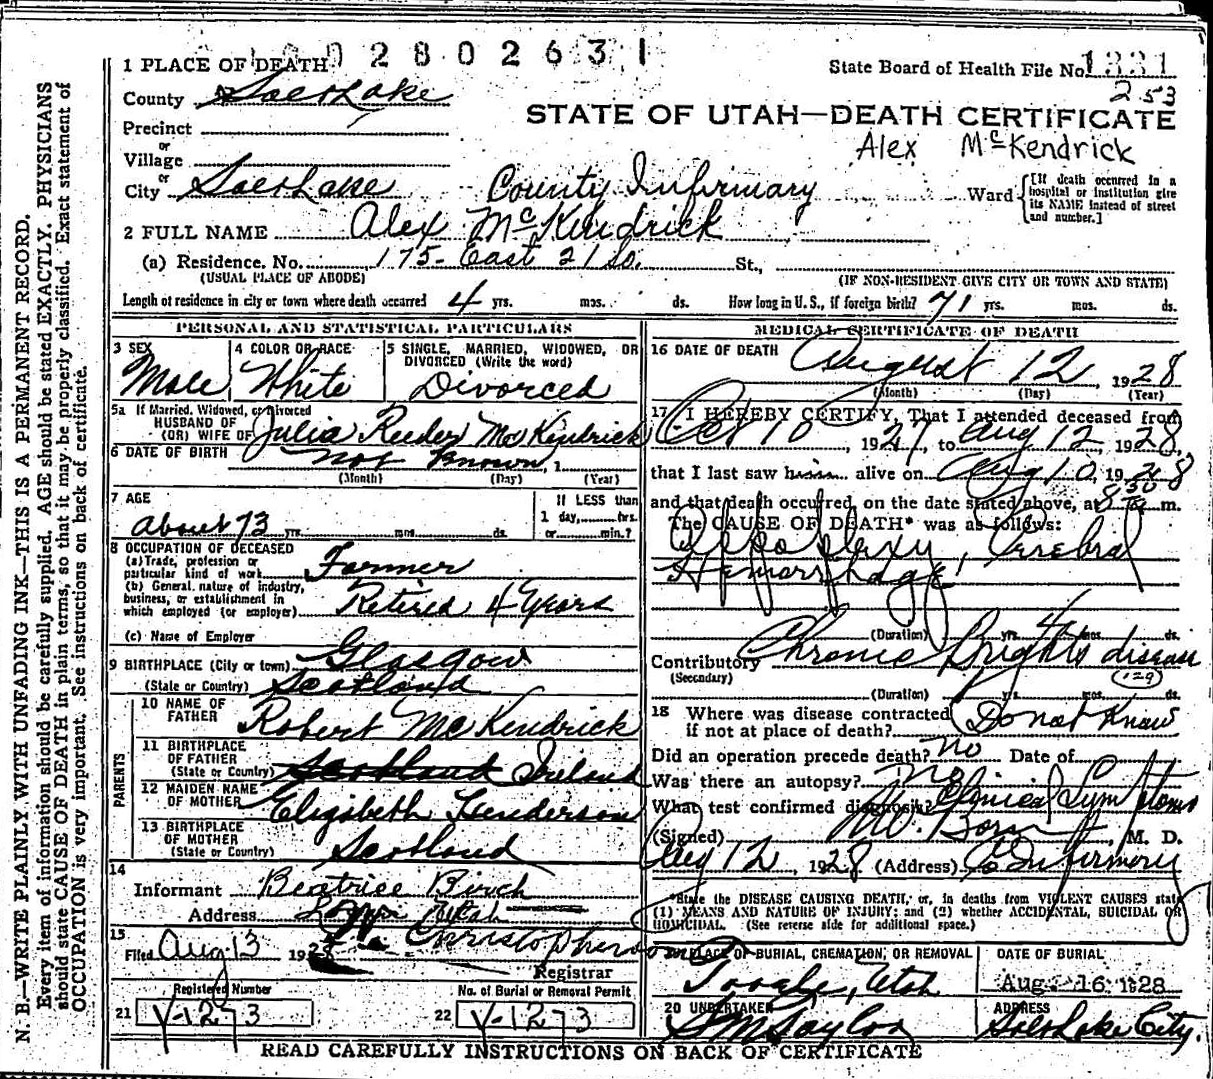 N. B.—WRITE PLAINLY WITH UNFADING INK—THIS IS A PERMANENT RECORD.
Every item of information should be carefully supplied. AGE should be stated EXACTLY. PHYSICIANS
should state CAUSE OF DEATH in plain terms, so that it may be properly classified. Exact statement of
OCCUPATION is very important. See instructions on back of certificate.
02802631
State Board of Health File No. 1331
253
STATE OF UTAH—DEATH CERTIFICATE
Alex McKendrick
1 PLACE OF DEATH
County Salt Lake
Precinct
or
Village
or
City Salt Lake County Infirmary Ward
[If death occurred in a
hospital or institution give
its NAME instead of street
and number.]
2 FULL NAME Alex McKendrick
(a) Residence. No. 175- East 21 So. St.,
(USUAL PLACE OF ABODE) (IF NON-RESIDENT GIVE CITY OR TOWN AND STATE)
Length of residence in city or town where death occurred 4 yrs. mos. ds. How long in U. S., if foreign birth? 71 yrs. mos. ds.
PERSONAL AND STATISTICAL PARTICULARS
3 SEX
Male
4 COLOR OR RACE
White
5 SINGLE, MARRIED, WIDOWED, OR
DIVORCED (Write the word)
Divorced
5a If Married, Widowed, or Divorced
HUSBAND OF
(OR) WIFE OF Julia Reeder McKendrick
6 DATE OF BIRTH not Known, 1
(Month) (Day) (Year)
7 AGE
about 73 yrs. mos. ds.
If LESS than
1 day, hrs.
or min.?
8 OCCUPATION OF DECEASED
(a) Trade, profession or
particular kind of work Farmer
(b) General nature of industry,
business, or establishment in
which employed (or employer) Retired 4 Years
(c) Name of Employer
9 BIRTHPLACE (City or town) Glasgow
(State or Country) Scotland
PARENTS
10 NAME OF
FATHER Robert McKendrick
11 BIRTHPLACE
OF FATHER
(State or Country) Scotland Ireland
12 MAIDEN NAME
OF MOTHER Elizabeth Henderson
13 BIRTHPLACE
OF MOTHER
(State or Country) Scotland
14
Informant Beatrice Birch
Address Utah
15
Filed Aug 13 1928 Christopherson
Registrar
Registered Number
21 V-1273
No. of Burial or Removal Permit
22 V-1273
MEDICAL CERTIFICATE OF DEATH
16 DATE OF DEATH August 12, 1928
(Month) (Day) (Year)
17 I HEREBY CERTIFY, That I attended deceased from
Oct 10, 1927, to Aug 12, 1928,
that I last saw him alive on Aug 10, 1928
and that death occurred, on the date stated above, at 8 30 a. m.
The CAUSE OF DEATH* was as follows:
Appoplexy, Cerebral
Hemorrhage
(Duration) yrs. 4 mos. ds.
Contributory Chronic Brights disease
(Secondary) 129
(Duration) yrs. mos. ds.
18 Where was disease contracted
if not at place of death? Do not Know
Did an operation precede death? No Date of
Was there an autopsy? No
What test confirmed diagnosis? Clinical Symptoms
(Signed) W. Born, M. D.
Aug 12, 1928 (Address) Co Infirmary
*State the DISEASE CAUSING DEATH, or, in deaths from VIOLENT CAUSES state
(1) MEANS AND NATURE OF INJURY; and (2) whether ACCIDENTAL, SUICIDAL OR
HOMICIDAL. (See reverse side for additional space.)
19 PLACE OF BURIAL, CREMATION, OR REMOVAL
Tooele, Utah
DATE OF BURIAL
Aug 16 1928
20 UNDERTAKER
S M Taylor
ADDRESS
Salt Lake City.
READ CAREFULLY INSTRUCTIONS ON BACK OF CERTIFICATE